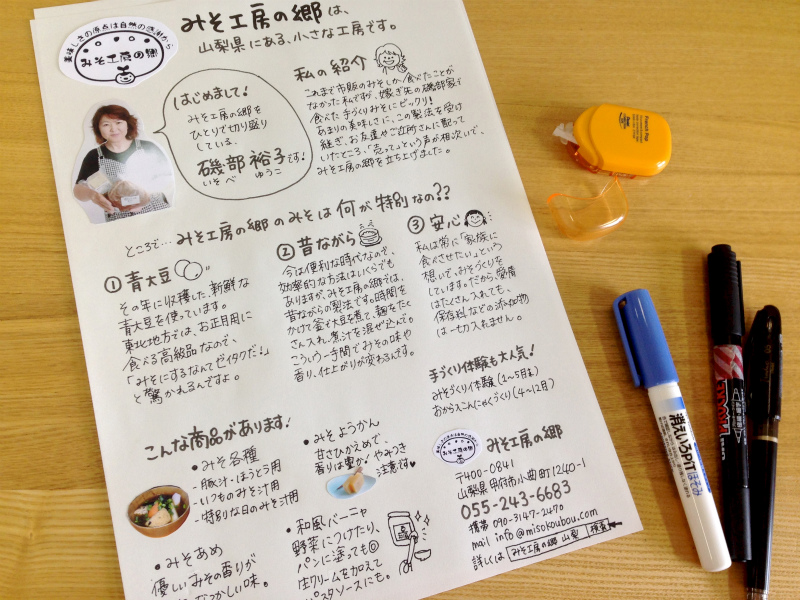 美味しさの原点は自然の感謝から
みそ工房の郷
みそ工房の郷は、
山梨県にある、小さな工房です。
はじめまして！
みそ工房の郷を
ひとりで切り盛り
している、
磯部 裕子です！
いそべ ゆうこ
私の紹介
これまで市販のみそしか食べたことが
なかった私ですが、嫁ぎ先の磯部家で
食べた手づくりみそにビックリ！
あまりの美味しさに、この製法を受け
継ぎ、お友達やご近所さんに配って
いたところ、「売って」という声が相次いで、
みそ工房の郷を立ち上げました。
ところで…みそ工房の郷のみそは何が特別なの??
① 青大豆
その年に収穫した、新鮮な
青大豆を使っています。
東北地方では、お正月用に
食べる高級品なので、
「みそにするなんてゼイタクだ！」
と驚かれるんですよ。
② 昔ながら
今は便利な時代なので、
効率的な方法はいくらでも
ありますが、みそ工房の郷では、
昔ながらの製法です。時間を
かけて釜で大豆を煮て、麹をたく
さん入れ、煮汁を混ぜ込んで。
こういう一手間でみその味や
香り、仕上がりが変わるんです。
③ 安心
私は常に「家族に
食べさせたい」という
想いで、みそづくりを
しています。だから、愛情
はたくさん入れても、
保存料などの添加物
は一切入れません。
手づくり体験も大人気！
みそづくり体験（1〜5月まで）
おからこんにゃくづくり（4〜12月）
こんな商品があります！
・みそ各種
- 豚汁・ほうとう用
- いつものみそ汁用
- 特別な日のみそ汁用
・みそあめ
優しいみその香りが
なつかしい味。
・みそようかん
甘さひかえめで、
香りは豊か！やみつき
注意です♥
・和風バーニャ
野菜につけたり、
パンに塗っても◎
生クリームを加えて
パスタソースにも。
みそ工房の郷
みそ工房の郷
〒400-0841
山梨県甲府市小曲町1240-1
055-243-6683
携帯 090-3147-2470
mail info@misokoubou.com
詳しくは みそ工房の郷 山梨 検索
消えいろPiT
ほそみ